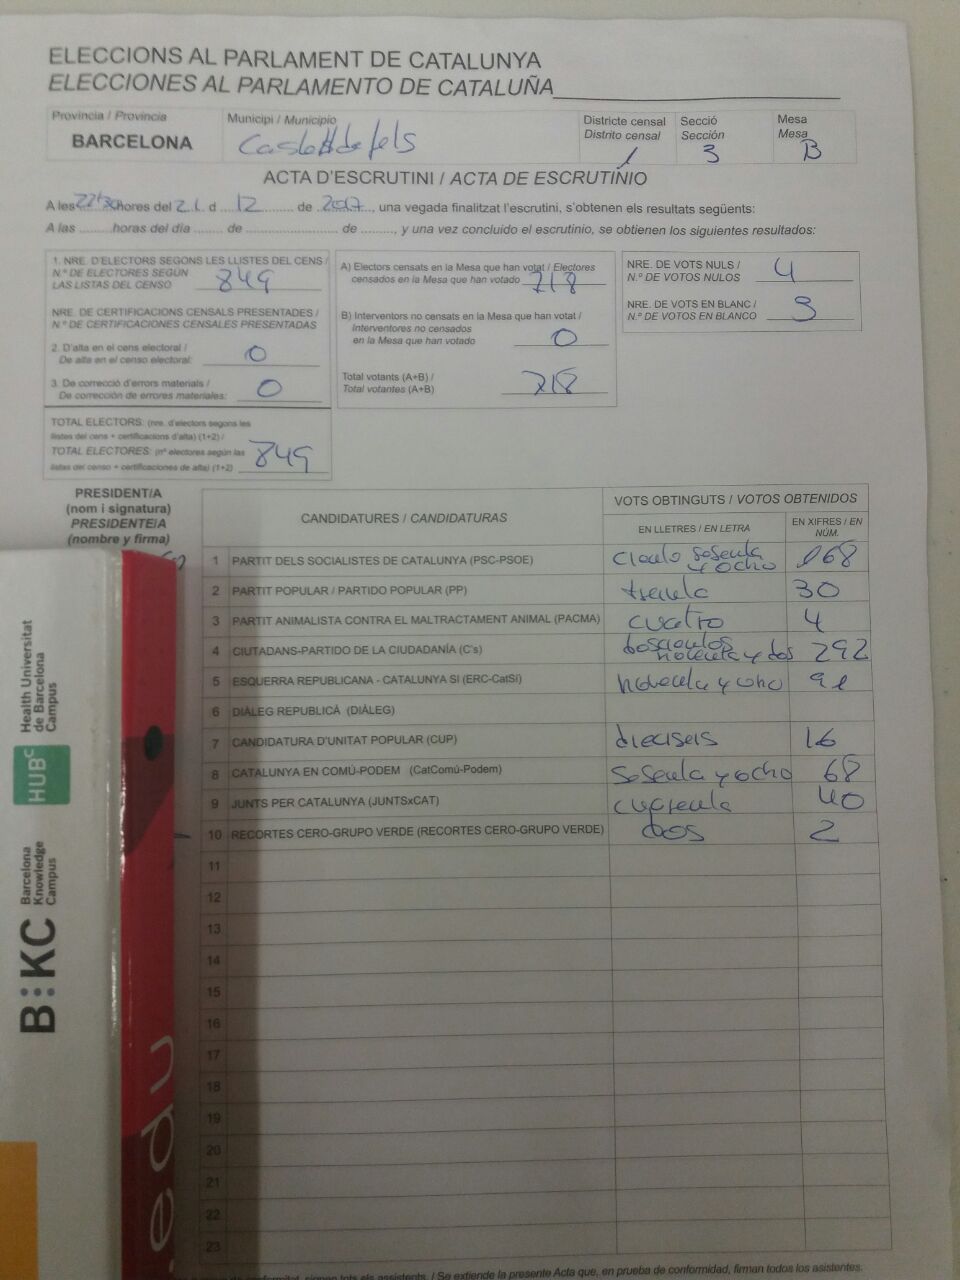 ELECCIONS AL PARLAMENT DE CATALUNYA
ELECCIONES AL PARLAMENTO DE CATALUÑA
Provincia / Provincia
BARCELONA
Municipi / Municipio
Castelldefels
Districte censal
Distrito censal
1
Secció
Sección
3
Mesa
Mesa
B
ACTA D'ESCRUTINI / ACTA DE ESCRUTINIO
A les 22'30 hores del 21 d 12 de 2017, una vegada finalitzat l'escrutini, s'obtenen els resultats següents:
A las ........ horas del día ........ de ........................ de ........, y una vez concluido el escrutinio, se obtienen los siguientes resultados:
1. NRE. D'ELECTORS SEGONS LES LLISTES DEL CENS /
N.º DE ELECTORES SEGÚN
LAS LISTAS DEL CENSO 849
NRE. DE CERTIFICACIONS CENSALS PRESENTADES /
N.º DE CERTIFICACIONES CENSALES PRESENTADAS
2. D'alta en el cens electoral /
De alta en el censo electoral: 0
3. De correcció d'errors materials /
De corrección de errores materiales: 0
TOTAL ELECTORS: (nre. d'electors segons les
llistes del cens + certificacions d'alta) (1+2) /
TOTAL ELECTORES: (nº electores según las
listas del censo + certificaciones de alta) (1+2) 849
A) Electors censats en la Mesa que han votat / Electores
censados en la Mesa que han votado 718
B) Interventors no censats en la Mesa que han votat /
Interventores no censados
en la Mesa que han votado 0
Total votants (A+B) /
Total votantes (A+B) 718
NRE. DE VOTS NULS /
N.º DE VOTOS NULOS 4
NRE. DE VOTS EN BLANC /
N.º DE VOTOS EN BLANCO 3
PRESIDENT/A
(nom i signatura)
PRESIDENTE/A
(nombre y firma)
CANDIDATURES / CANDIDATURAS
VOTS OBTINGUTS / VOTOS OBTENIDOS
EN LLETRES / EN LETRA
EN XIFRES / EN NÚM.
1 PARTIT DELS SOCIALISTES DE CATALUNYA (PSC-PSOE) ciento sesenta y ocho 168
2 PARTIT POPULAR / PARTIDO POPULAR (PP) treinta 30
3 PARTIT ANIMALISTA CONTRA EL MALTRACTAMENT ANIMAL (PACMA) cuatro 4
4 CIUTADANS-PARTIDO DE LA CIUDADANÍA (C's) doscientos noventa y dos 292
5 ESQUERRA REPUBLICANA - CATALUNYA SI (ERC-CatSi) noventa y uno 91
6 DIÀLEG REPUBLICÀ (DIÀLEG)
7 CANDIDATURA D'UNITAT POPULAR (CUP) dieciseis 16
8 CATALUNYA EN COMÚ-PODEM (CatComú-Podem) sesenta y ocho 68
9 JUNTS PER CATALUNYA (JUNTSxCAT) cuarenta 40
10 RECORTES CERO-GRUPO VERDE (RECORTES CERO-GRUPO VERDE) dos 2
11
12
13
14
15
16
17
18
19
20
21
22
23
de conformitat, signen tots els assistents. / Se extiende la presente Acta que, en prueba de conformidad, firman todos los asistentes.
Health Universitat
de Barcelona
Campus
HUBc
B:KC
Barcelona
Knowledge
Campus
edu